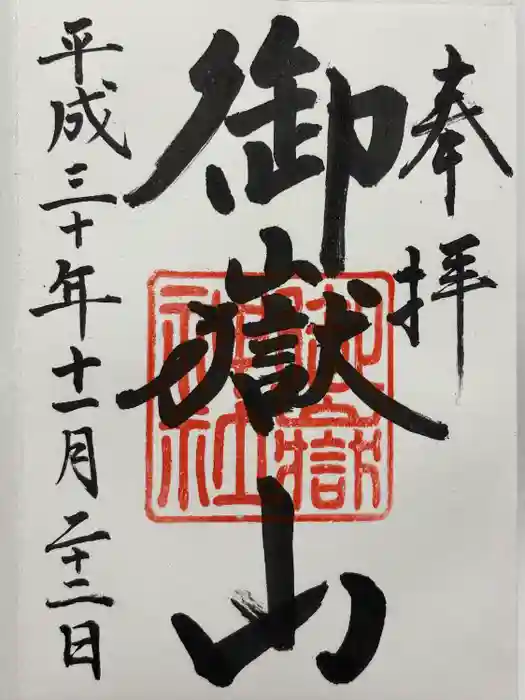 奉拝
御嶽山
平成三十年十一月二十二日